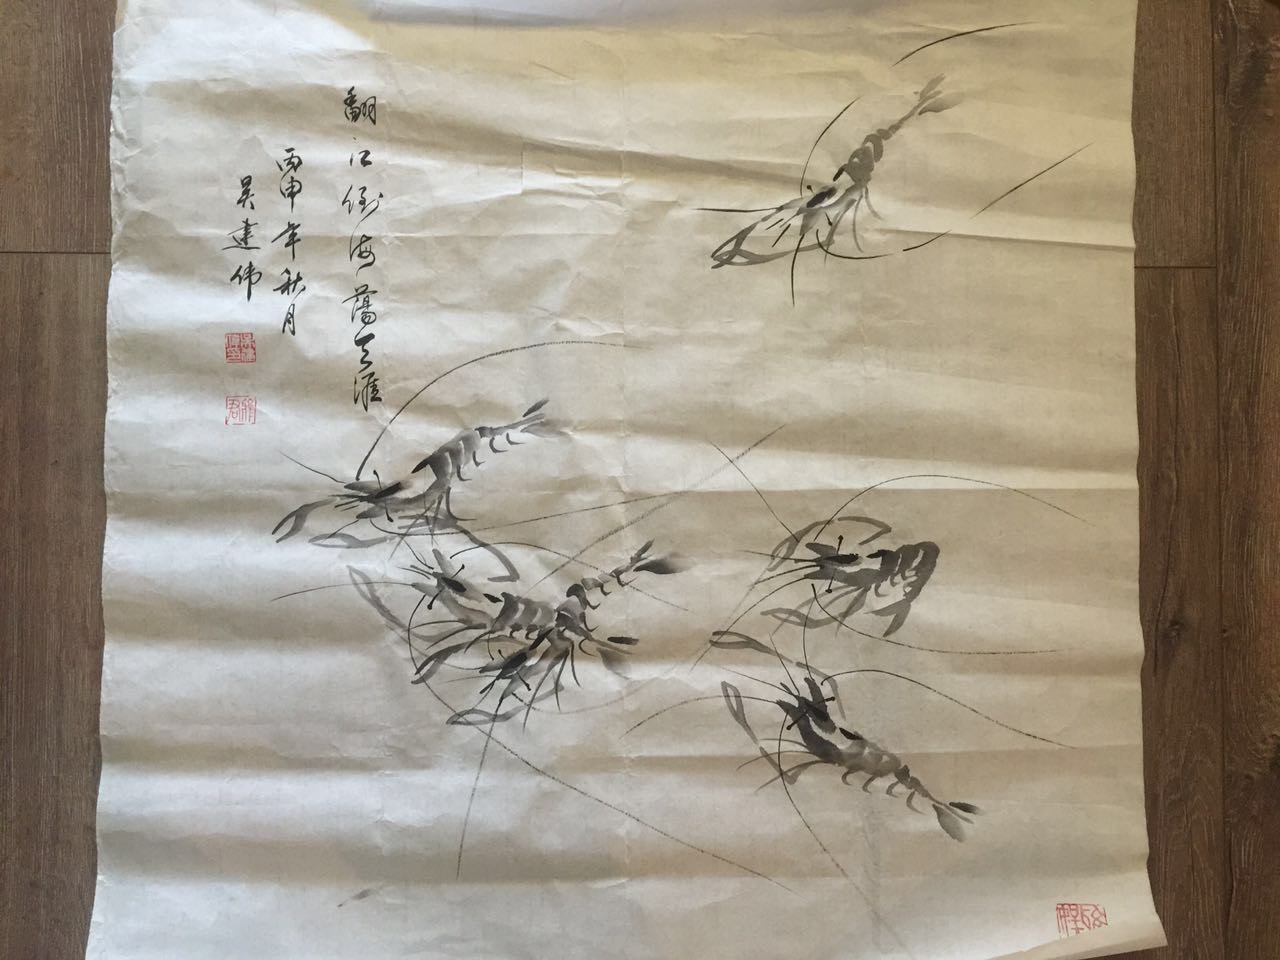 翻江倒海荡天涯
丙申年秋月
吴建伟